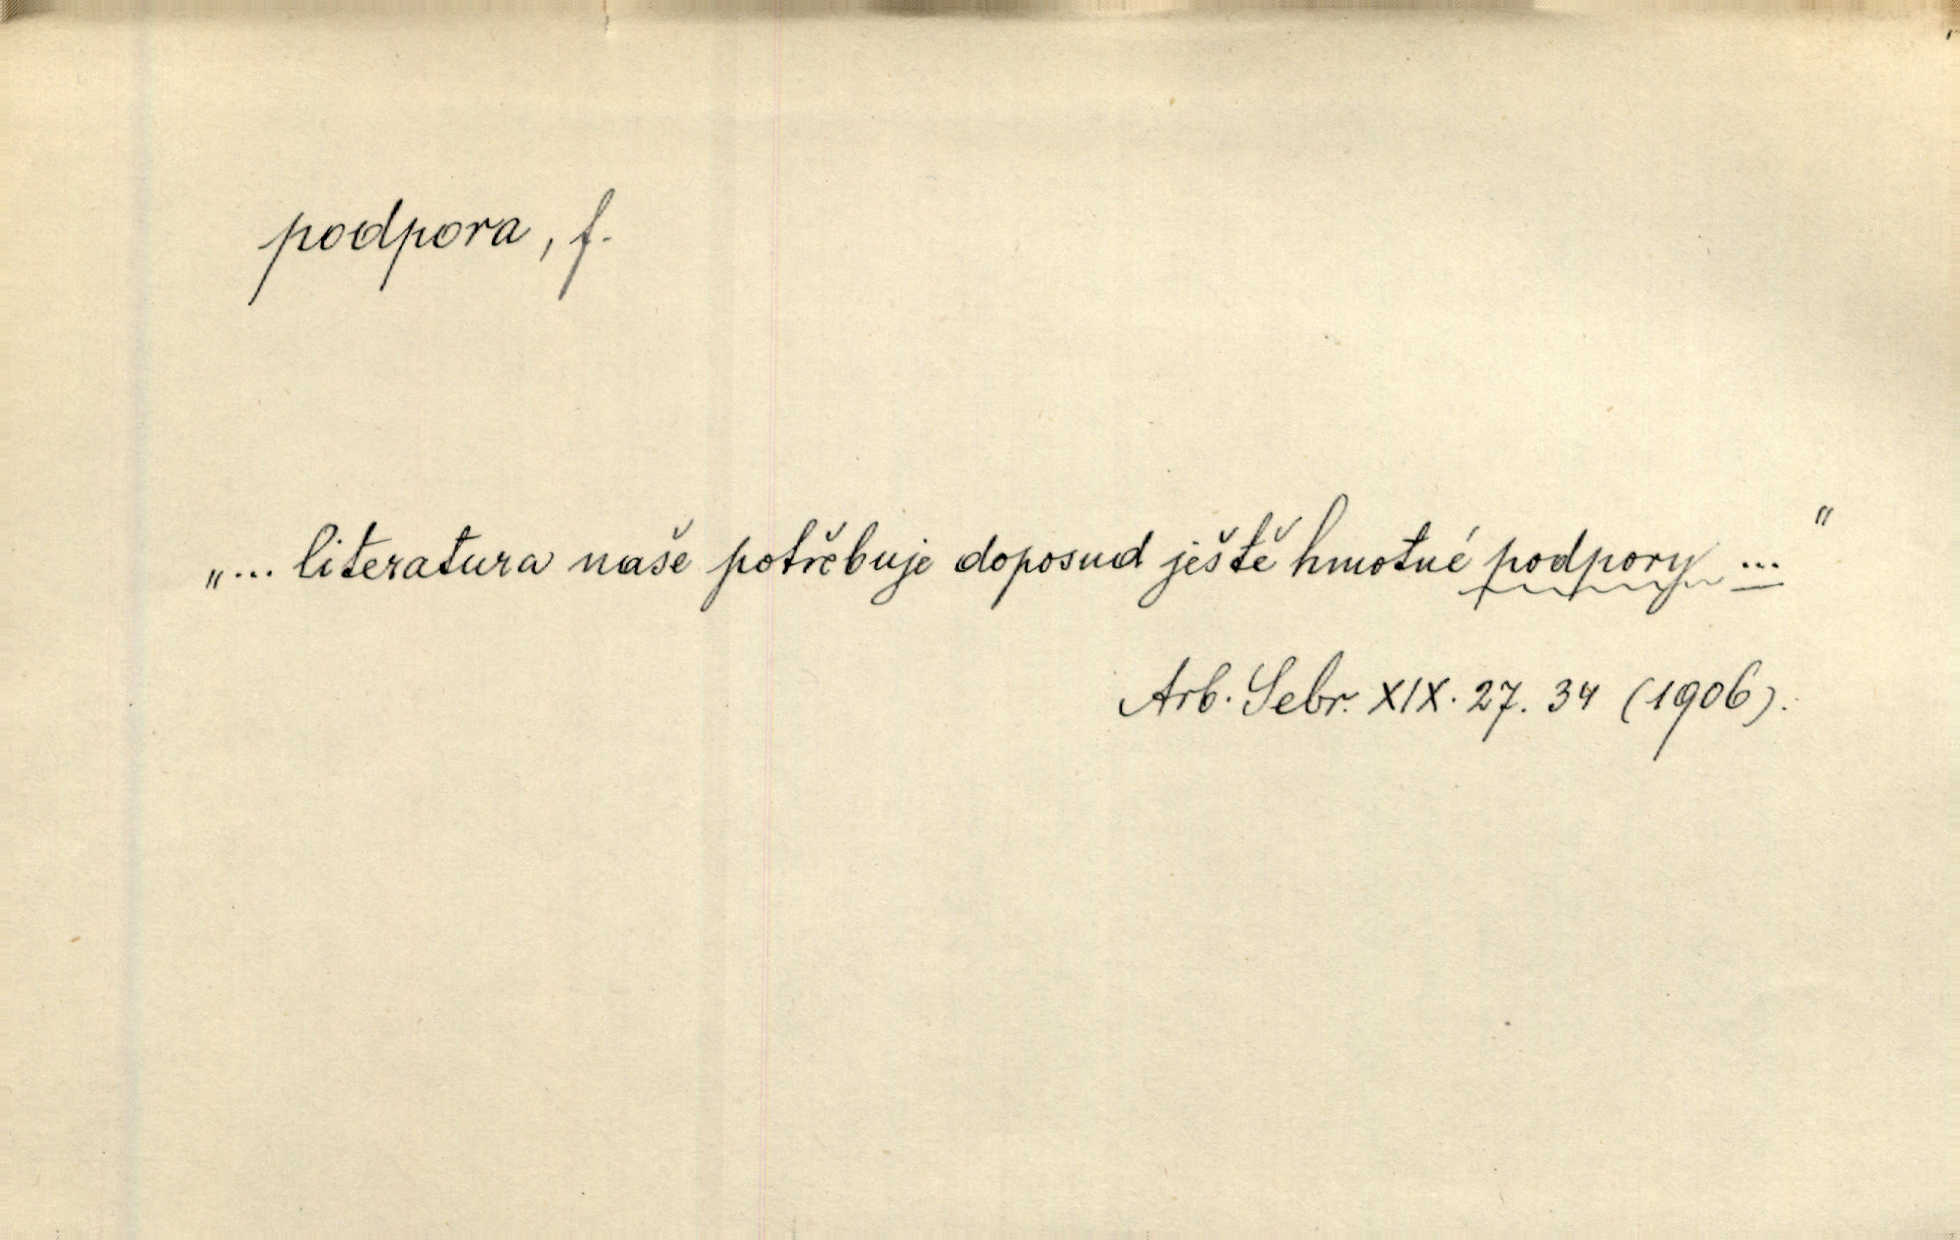 podpora, f.
„... literatura naše potřebuje doposud ještě hmotné podpory ..."
Arb. Sebr. XIX. 27. 34 (1906).